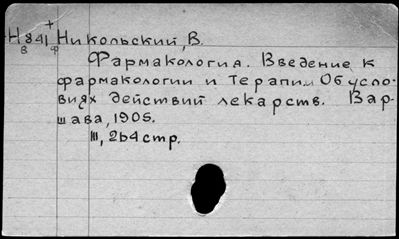 +
Н841 Никольский, В.
В ф
Фармакология. Введение к
фармакологии и терапии. Об усло-
виях действий лекарств. Вар-
шава, 1905.
III, 264 стр.